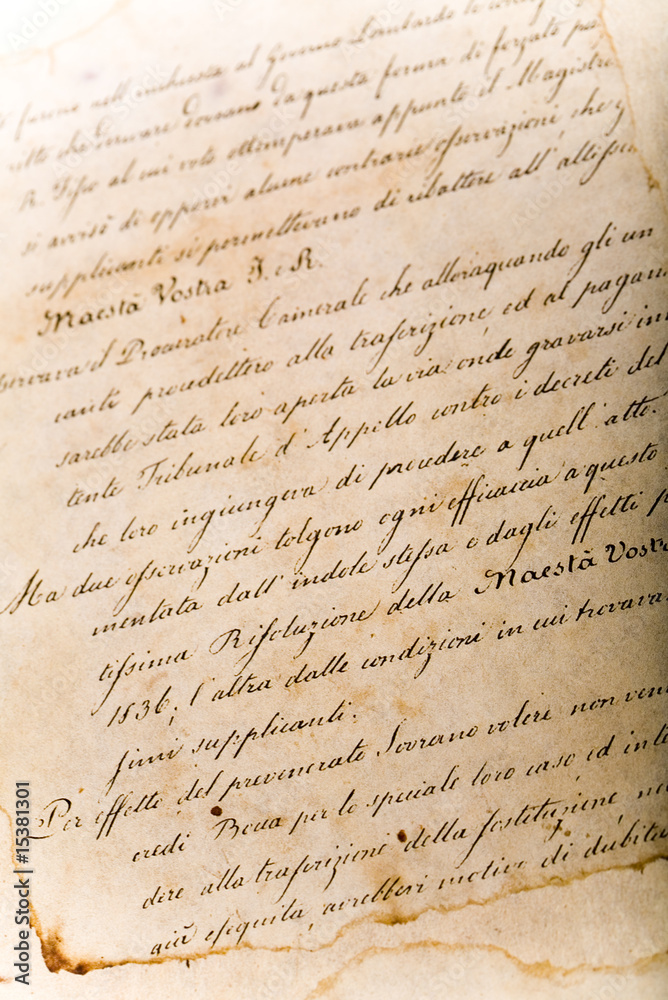 furono nell'inchiesta al Governo Lombardo
che derivare dovano da questa forma di forzato
R. Fisco al cui voto ottemperava appunto il Magistra
si avvisò di opporvi alcune contrarie osservazioni, che
supplicanti si permettevano di ribattere all'altissi
Maestà Vostra I. e R.
servava il Procuratore Camerale che alloraquando gli un
canti procedettero alla trascrizione, ed al pagam
sarebbe stata loro aperta la via onde gravarsi in
tente Tribunale d'Appello contro i decreti del
che loro ingiungeva di procedere a quell'atto.
Ma due osservazioni tolgono ogni efficacia a questo
mentata dall'indole stessa e dagli effetti
tissima Risoluzione della Maestà Vostra
1836; l'altra dalle condizioni in cui trovava
simi supplicanti.
Per effetto del prevenerato Sovrano volere non ven
eredi Bocca per lo speciale loro caso ed int
dere alla trascrizione della sostituzione,
già eseguita, avrebbero motivo di dubita
15381301
Adobe Stock | #15381301